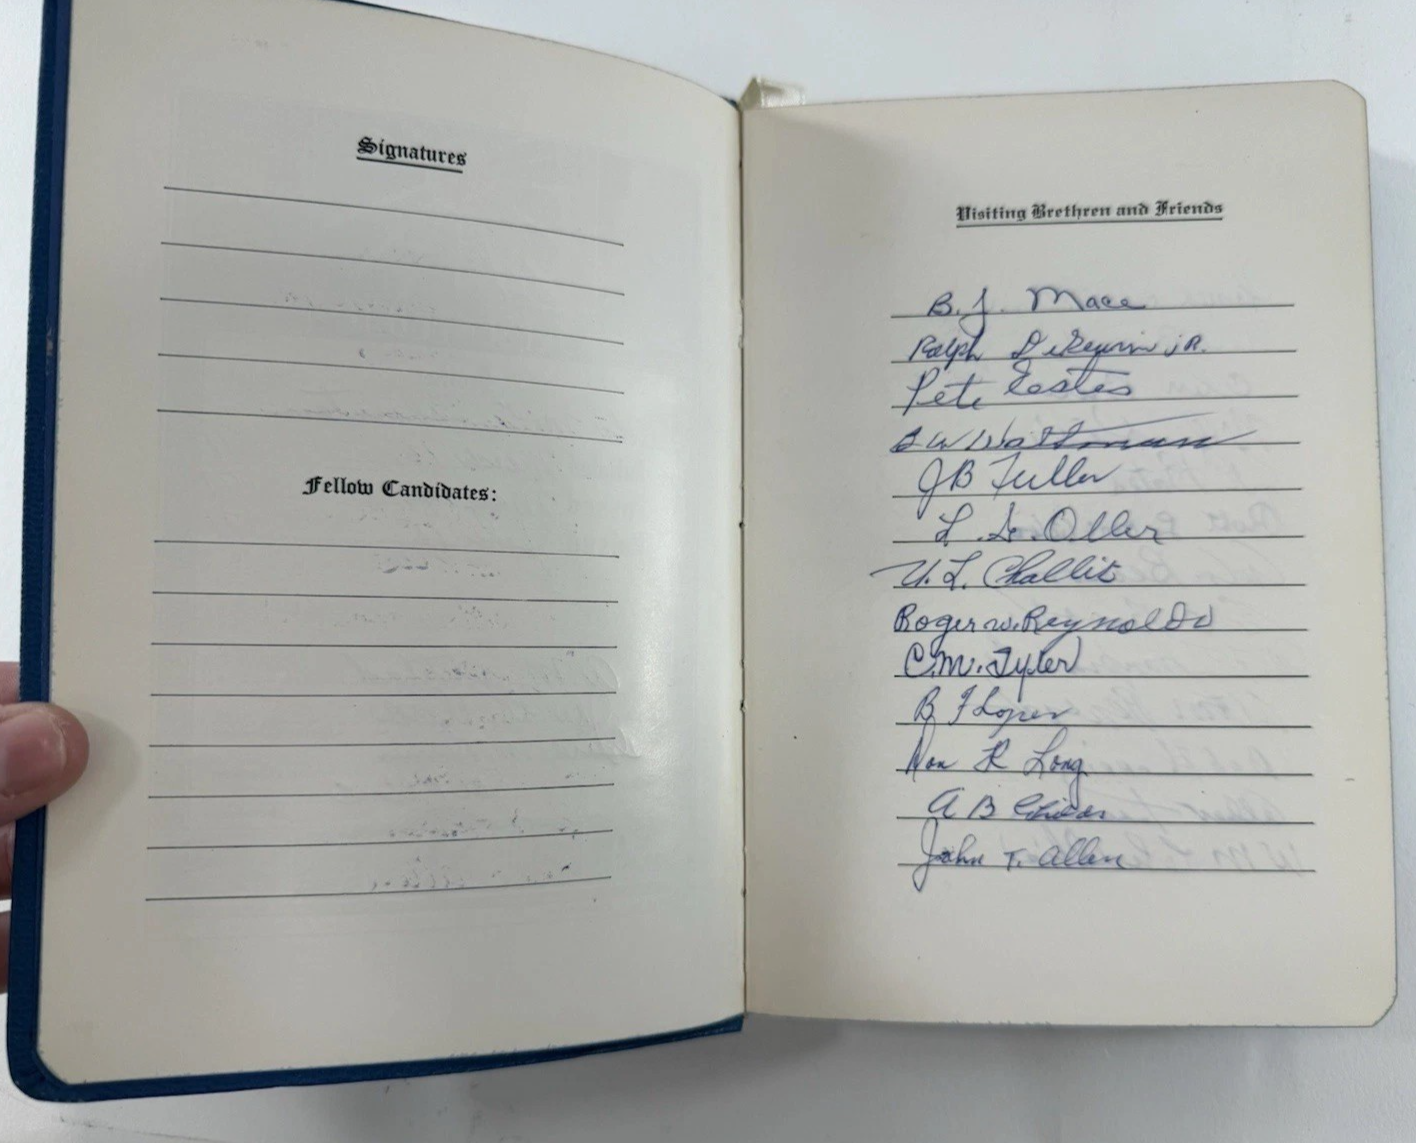 Signatures
Fellow Candidates:
Visiting Brethren and Friends
B. J. Mace
Ralph jR.
Pete Estes
B W
JB Fuller
L. G. Oller
L. Challis
Roger W. Reynolds
C.M. Tyler
B F Loper
Don R Long
A B Childs
John T. Allen